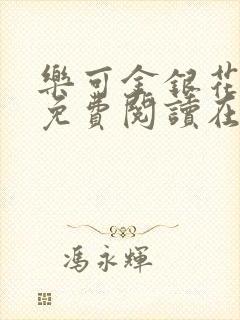 樂可金銀花
免費閱讀在
馮永輝